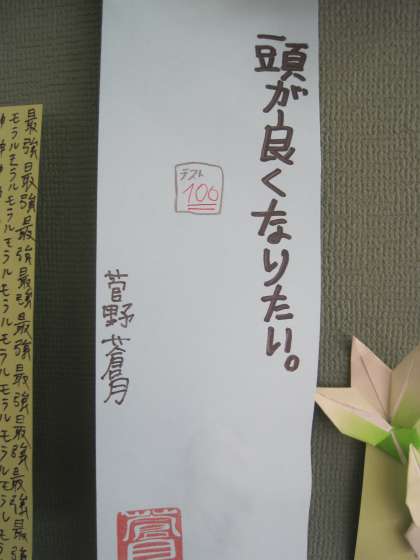 頭が良くなりたい。
テスト
100
菅野 蒼月
最強最強最強最強最強最強最強最強最強
モラルモラルモラルモラルモラルモラルモラル